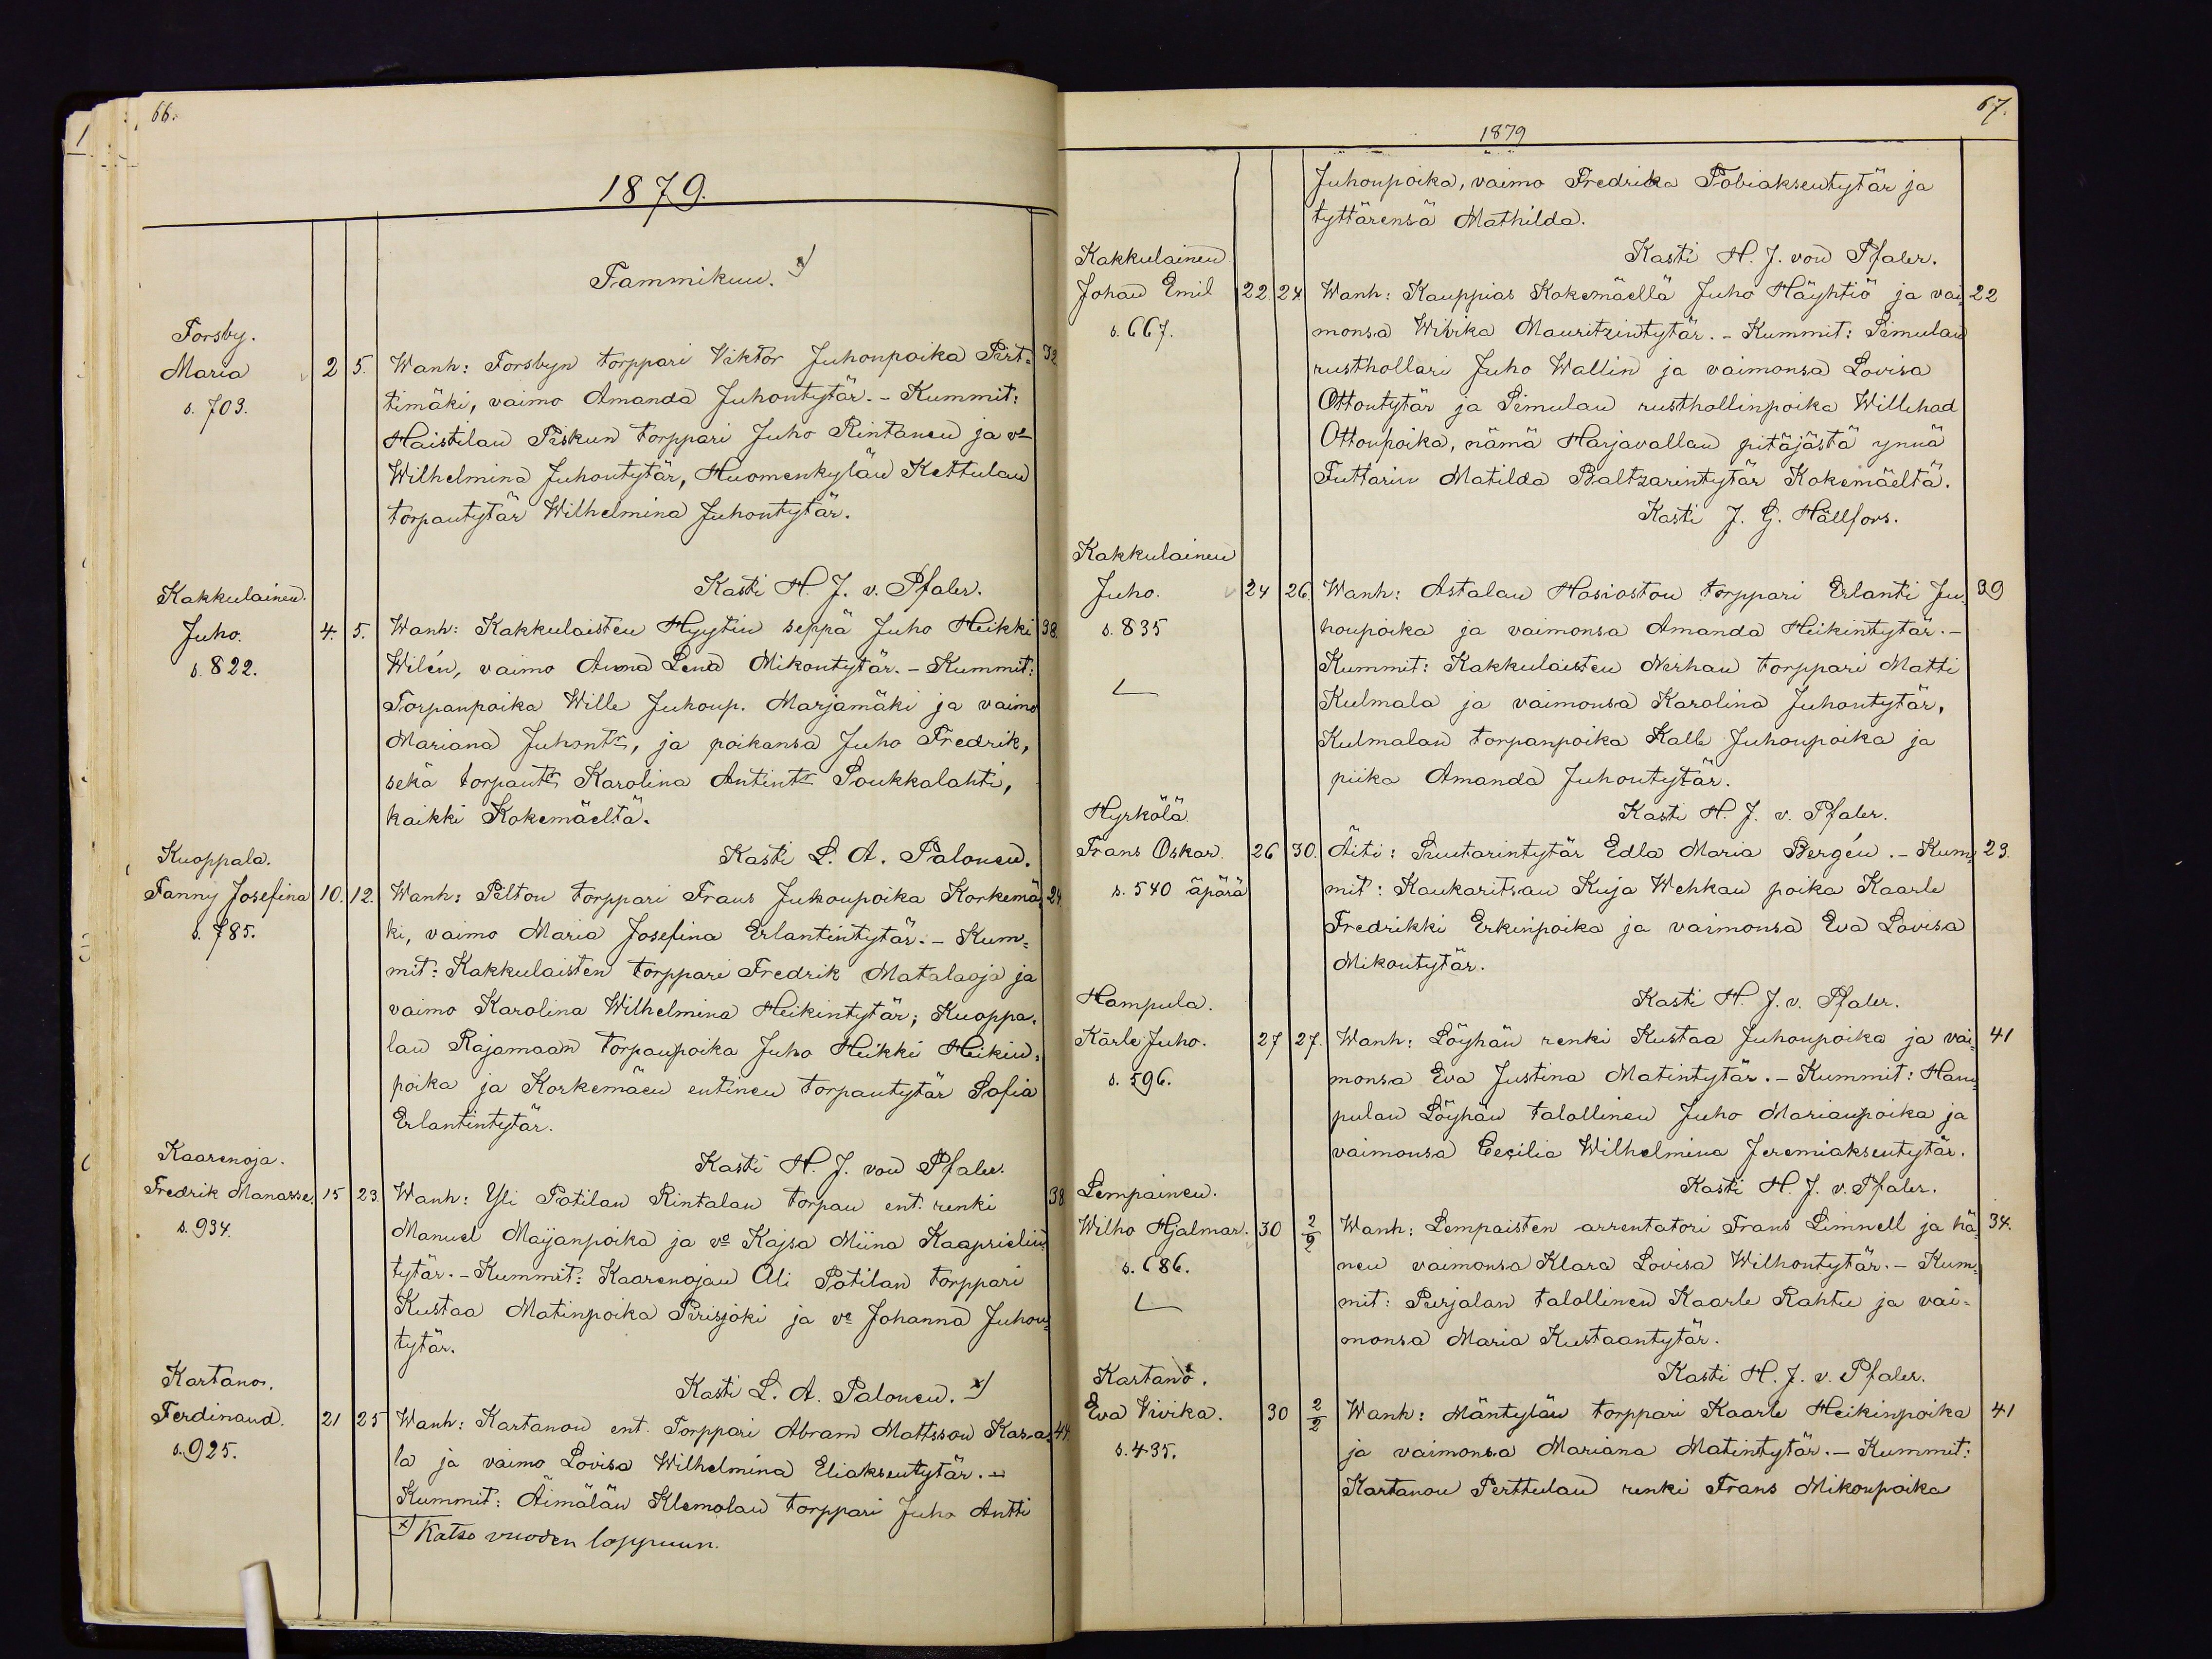 66.
1879.
Tammikuu. x)
Forsby.
Maria 2 5. Wanh: Forsbyn torppari Viktor Juhonpoika Pirt= 32
s. 703. timäki, vaimo Amanda Juhontytär. - Kummit:
Haistilan Piskun torppari Juho Rintanen ja vo
Wilhelmina Juhontytär, Huomenkylän Kettulan
torpantytär Wilhelmina Juhontytär.
Kasti H. J. v. Pfaler.
Kakkulainen.
Juho. 4. 5. Wanh: Kakkulaisten Hyytin seppä Juho Heikki 38.
s. 822. Wilén, vaimo Anna Lena Mikontytär. - Kummit:
Torpanpoika Wille Juhonp. Marjamäki ja vaimo
Mariana Juhontr, ja poikansa Juho Fredrik,
sekä torpantr Karolina Antintr Poukkalahti,
kaikki Kokemäeltä.
Kasti L. A. Palonen.
Kuoppala.
Fanny Josefina 10. 12. Wanh: Pelton torppari Frans Juhonpoika Korkemä= 24.
s. 785. ki, vaimo Maria Josefina Erlantintytär. - Kum=
mit: Kakkulaisten torppari Fredrik Matalaoja ja
vaimo Karolina Wilhelmina Heikintytär; Kuoppa=
lan Rajamaan torpanpoika Juho Heikki Heikin=
poika ja Korkemäen entinen torpantytär Sofia
Erlantintytär.
Kasti H. J. von Pfaler.
Kaarenoja.
Fredrik Manasse. 15 23. Wanh: Yli Potilan Rintalan torpan ent. renki 38
s. 934. Manuel Maijanpoika ja vo Kajsa Miina Kaaprielin=
tytär. - Kummit: Kaarenojan Ali Potilan torppari
Kustaa Matinpoika Pirisjoki ja vo Johanna Juhon=
tytär.
Kasti L. A. Palonen. x)
Kartano.
Ferdinand. 21 25 Wanh: Kartanon ent. Torppari Abram Mattsson Kasa= 44.
s. 925. la ja vaimo Lovisa Wilhelmina Eliaksentytär. -
Kummit: Äimälän Klemolan torppari Juho Antti
x) Katso vuoden loppuun.
67.
1879
Juhonpoika, vaimo Fredrika Tobiaksentytär ja
tyttärensä Mathilda.
Kasti H. J. von Pfaler.
Kakkulainen
Johan Emil 22. 24. Wanh: Kauppias Kokemäellä Juho Häyhtiö ja vai= 22
s. 667. monsa Wivika Mauritzintytär. - Kummit: Pimulan
rusthollari Juho Wallin ja vaimonsa Lovisa
Ottontytär ja Pimulan rusthollinpoika Willehad
Ottonpoika, nämä Harjavallan pitäjästä ynnä
Tuttarin Matilda Baltzarintytär Kokemäeltä.
Kasti J. G. Hällfors.
Kakkulainen
Juho. 24 26. Wanh: Astalan Hasiaston torppari Erlanti Ju= 39
s. 835 honpoika ja vaimonsa Amanda Heikintytär. -
Kummit: Kakkulaisten Nirhan torppari Matti
Kulmala ja vaimonsa Karolina Juhontytär,
Kulmalan torpanpoika Kalle Juhonpoika ja
piika Amanda Juhontytär.
Kasti H. J. v. Pfaler.
Hyrkölä.
Frans Oskar. 26 30. Äiti: Suutarintytär Edla Maria Bergén. - Kum= 23.
s. 540 äpärä mit: Kaukaritsan Kuja Wehkan poika Kaarle
Fredrikki Erkinpoika ja vaimonsa Eva Lovisa
Mikontytär.
Kasti H. J. v. Pfaler.
Hampula.
Kärle Juho. 27 27. Wanh: Löyhän renki Kustaa Juhonpoika ja vai= 41
s. 596. monsa Eva Justina Matintytär. - Kummit: Ham=
pulan Löyhän talollinen Juho Marianpoika ja
vaimonsa Cecilia Wilhelmina Jeremiaksentytär.
Kasti H. J. v. Pfaler.
Lempainen.
Wilho Hjalmar. 30 2/2 Wanh: Lempaisten arrentatori Frans Limnell ja hä= 34.
s. 686. nen vaimonsa Klara Lovisa Wilhontytär. - Kum=
mit: Purjalan talollinen Kaarle Rahtu ja vai=
monsa Maria Kustaantytär.
Kasti H. J. v. Pfaler.
Kartano.
Eva Vivika. 30 2/2 Wanh: Mäntylän torppari Kaarle Heikinpoika 41
s. 435. ja vaimonsa Mariana Matintytär. - Kummit:
Kartanon Perttulan renki Frans Mikonpoika